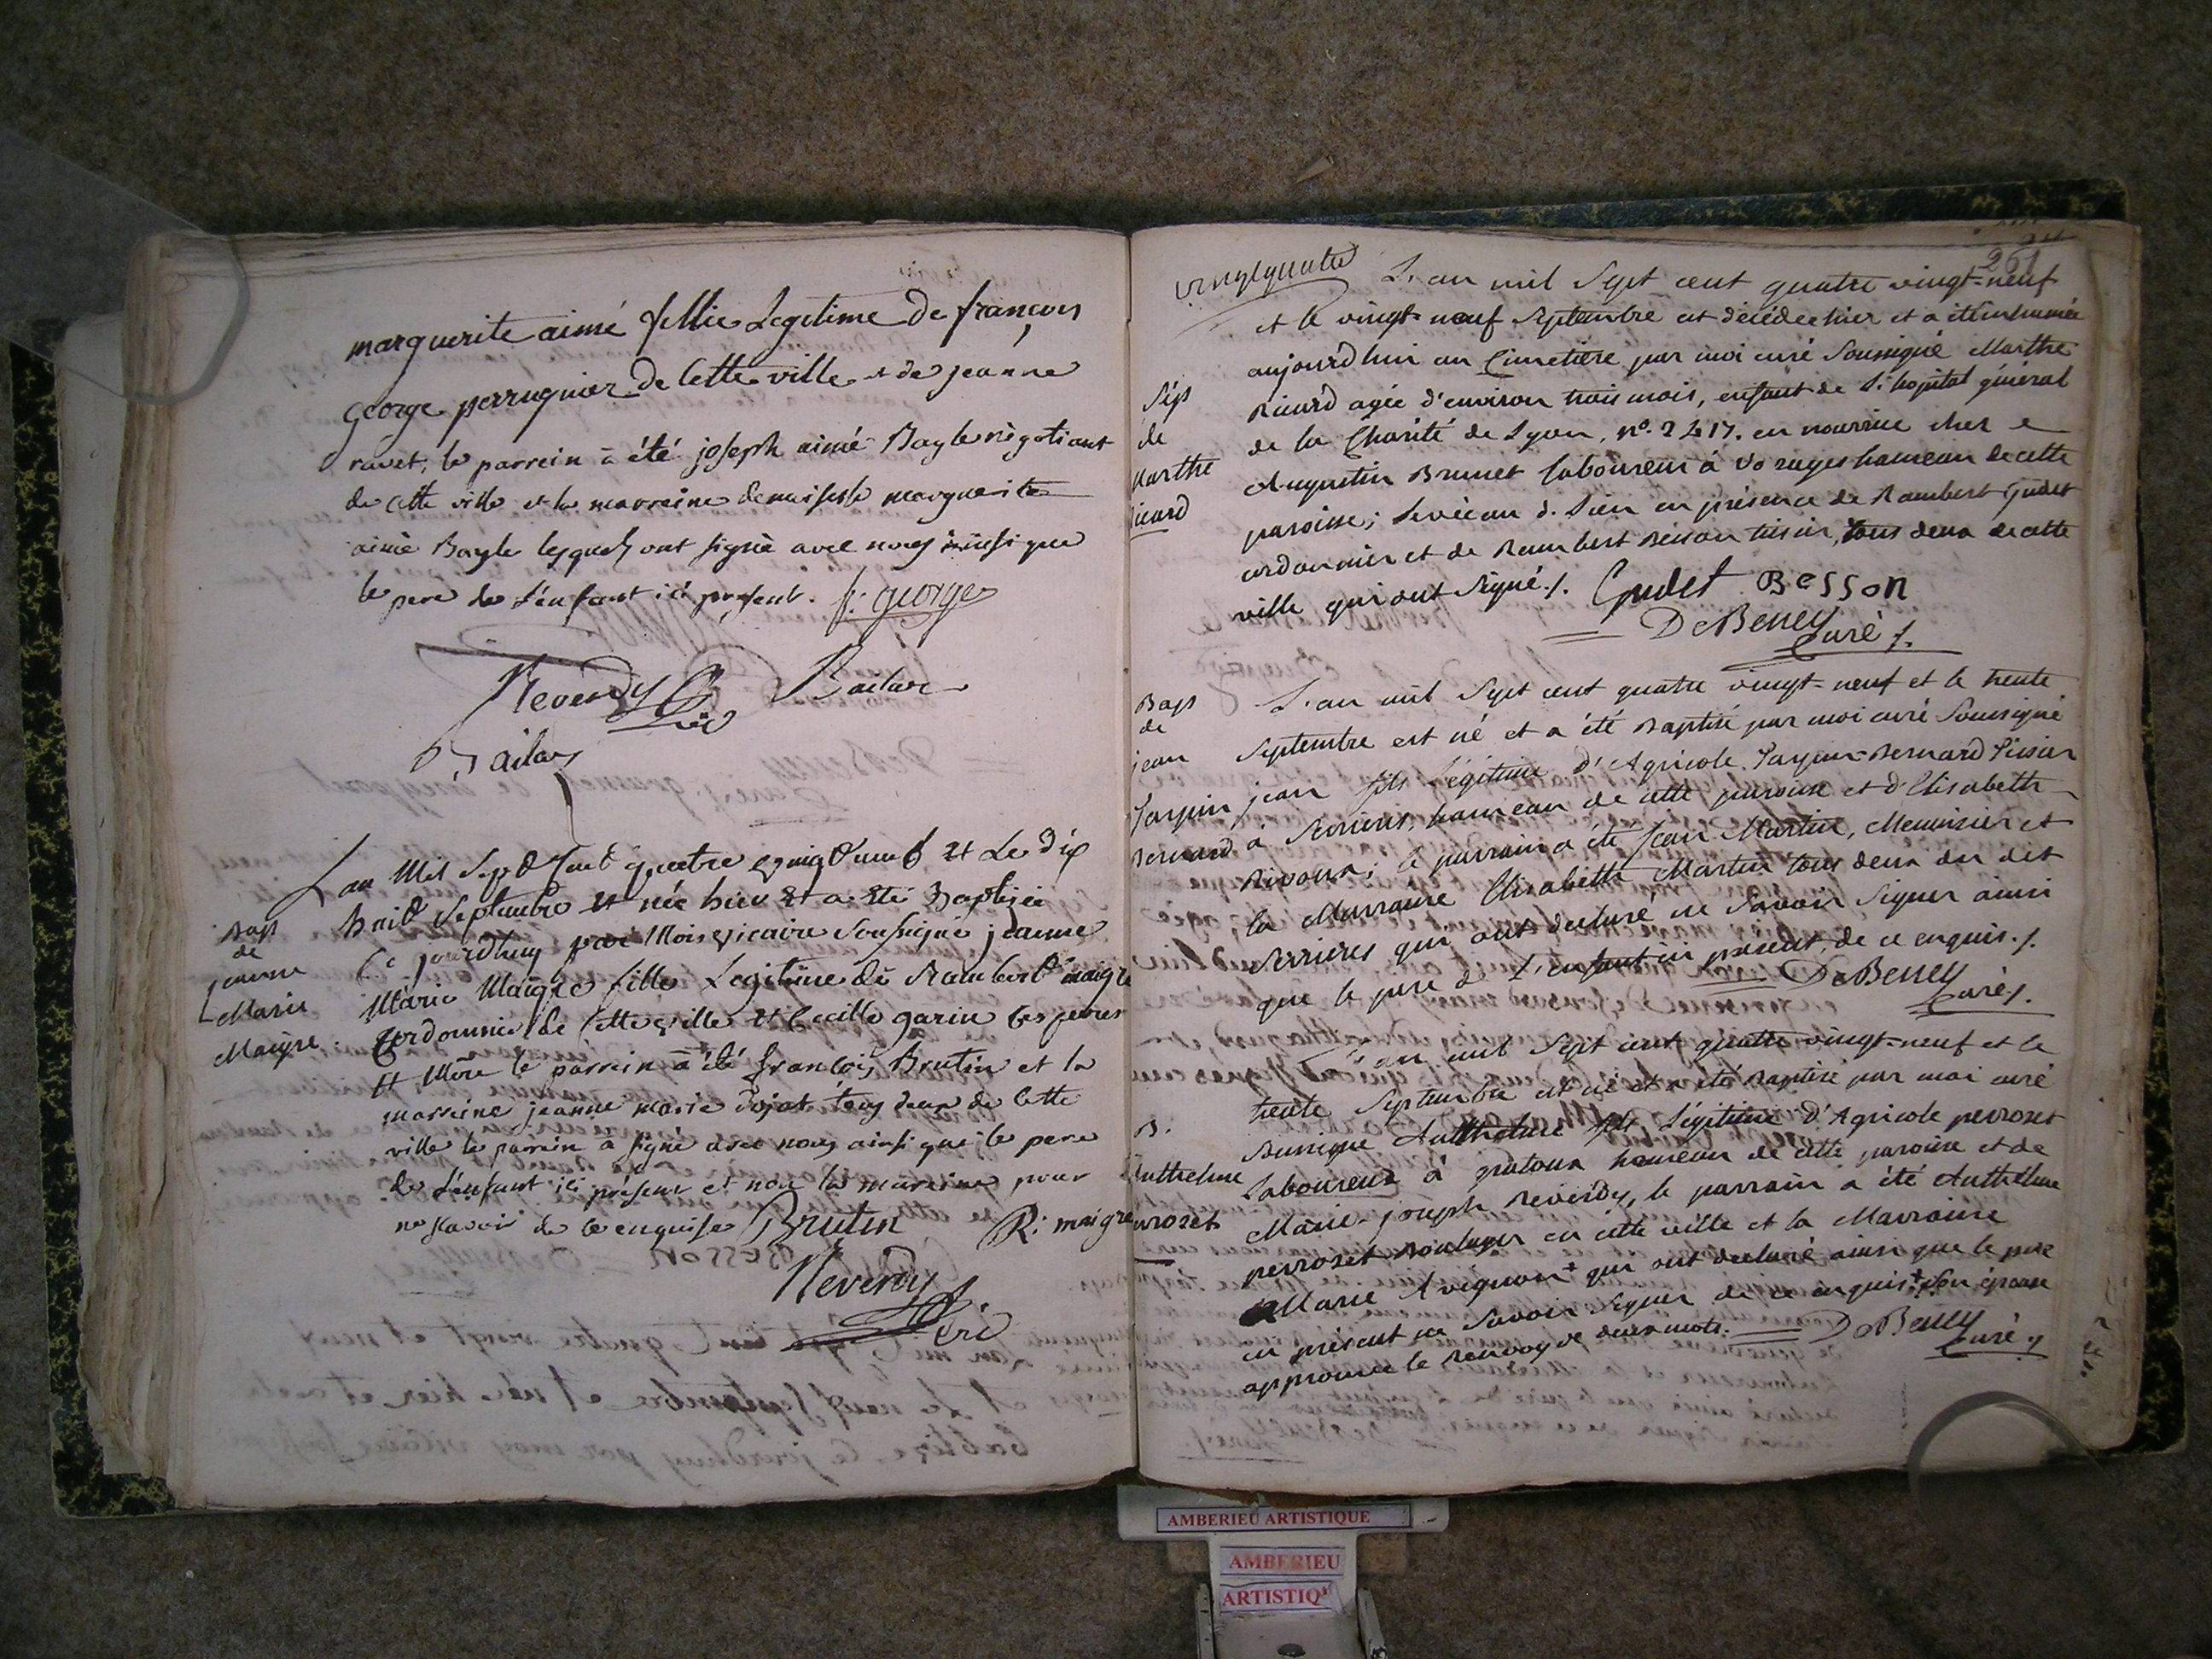 marguerite aimé fillie Legitime de françois
george perruquier de Cette ville et de jeanne
ravet, le parrein à été joseph aimé Bayle négotiant
de cette ville et la marreine demoiselle marguerite
aimé Bayle lesquels ont signé avec nous ainsi que
le pere de L'enfant ici present. f: george
Reverdy Baile
vic
Baile
Bap
de
jeanne
Marie
Maigre
Lan Mil Sept Cent quatre vingt neuf Et Le dix
huit Septembre Et née hier Et a Eté Baptisée
Ce jourdhuy par Moi vicaire Soussigné jeanne
Marie Maigre fille Legitime de Rambert maigre
Cordonnier de Cette ville Et Cecille garin Ses peres
Et Mere le parrein à été françois Brutin et la
marreine jeanne marie dojat tous deux de Cette
ville le parrein à signé avec nous ainsi que le pere
de L'enfant ici présent et non la marreine pour
ne savoir de ce enquise Brutin R: maigre
Reverdy
vic
261
vingtquatre
L'an mil Sept cent quatre vingt-neuf
et le vingt-neuf Septembre est décédée hier et a été inhumée
aujourd'hui au Cimetière par moi curé Soussigné Marthe
Ricard agée d'environ trois mois, enfant de L'hopital général
de la Charité de Lyon, n°. 2417. en nourrice chez
Augustin Brunet Laboureur à Vorages hameau de cette
paroisse; en présence de Rambert Gudet
cordonnier et de Rambert Besson tissier, tous deux de cette
ville qui ont Signé ./. Gudet Besson
DeBeney
Curé ./.
Sép
de
Marthe
Ricard
Bap
de
jean
Bernard
L'an mil Sept cent quatre vingt-neuf et le trente
Septembre est né et a été Baptisé par moi curé Soussigné
jean fils Légitime d'Agricole Bernard tissier
à Serrieres, hameau de cette paroisse et d'Elisabeth
; le parrain a été Jean Martin, Menuisier et
la Marraine Elisabeth Martin tous deux du dit
Serrieres qui ont declaré ne Savoir Signer ainsi
que le pere de L'enfant ici present, de ce enquis ./.
DeBeney
Curé ./.
B.
Anthelme
perrozet
L'an mil Sept cent quatre vingt-neuf et le
trente Septembre est né et a été Baptisé par moi curé
Soussigné Anthelme fils Légitime d'Agricole perrozet
Laboureur à gratoux hameau de cette paroisse et de
Marie-joseph Reverdy, le parrain a été Anthelme
perrozet Boulanger en cette ville et la Marraine
Marie Avignon + qui ont declaré ainsi que le pere
ici présent ne Savoir Signer de ce enquis + Son épouse
approuvé le Renvoy de deux mots. DeBeney
Curé ./.
AMBERIEU ARTISTIQUE
AMBERIEU
ARTISTIQ'